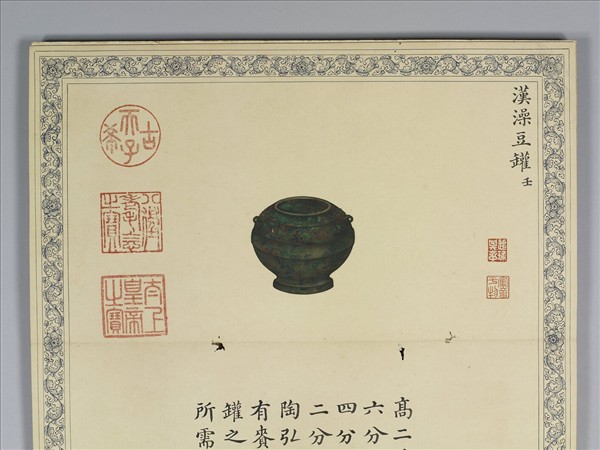 漢澡豆罐 壬
高二
六分
四分
二分
陶弘
有賚
罐之
所需
古希天子
八徵耄念之寶
太上皇帝之寶